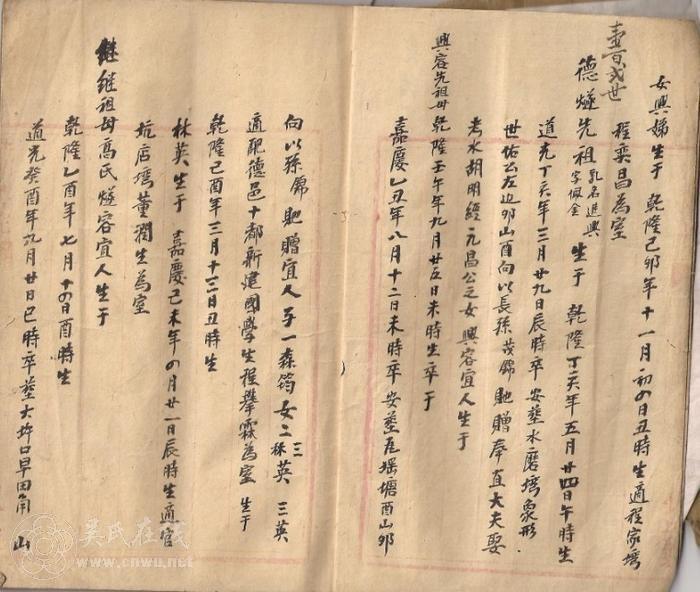 女興娣生于 乾隆己卯年十一月初四日丑時生適程家塢
程奕昌為室
壹百弍世
德燧先祖 乳名進興 字佩金 生于 乾隆丁亥年五月廿四日午時生
道光丁亥年三月廿九日辰時卒 安塟水磨塢象形
世祐公左边卯山酉向以長孫茂錦 貤贈奉直大夫娶
考水胡明經元昌公之女興容宜人生于
興容先祖母 乾隆壬午年九月廿五日未時生卒于
嘉慶乙丑年八月十二日未時卒 安塟瓦瑶塘酉山卯
向以孫錦 貤贈宜人 子一森筠 女二 三秌英 三英
適配德邑十都新建國學生程攀霖為室 生于
乾隆己酉年三月十三日丑時生
林英生于 嘉慶己未年四月廿一日辰時生適官
坑店塢董潤生為室
繼继祖母高氏燧容宜人生于
乾隆乙酉年七月十四日酉時生
道光癸酉年九月廿日巳時卒塟大圷口早田角 山
吴氏在线
www.cnwu.net